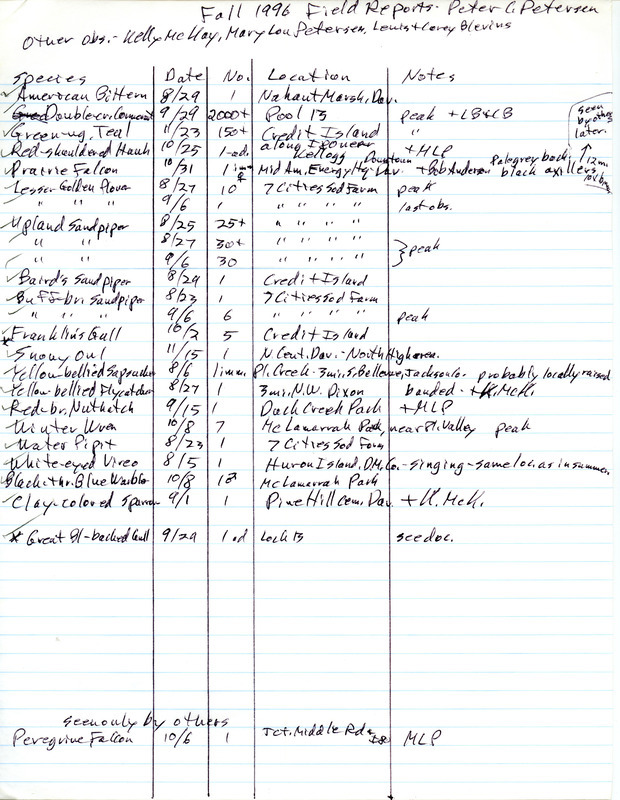 Fall 1996 Field Reports - Peter C. Petersen
Other obs. - Kelly McKay, Mary Lou Petersen, Lewis + Corey Blevins
Species Date No. Location Notes
American Bittern 8/29 1 Nahant Marsh, Dav.
Double-cr. Cormorant 9/29 2000+ Pool 13 peak + LB & CB
Green-wg. Teal 11/23 150+ Credit Island "
Red-shouldered Hawk 10/25 1-ad. along I80 near Kellogg + MLP
Prairie Falcon 10/31 1 imm Mid Am. Energy Hq. Downtown Dav. + Bob Anderson pale grey back, black axillers
seen by others later.
Lesser Golden Plover 8/27 10 7 Cities Sod Farm peak
" " 9/6 1 " " " " last obs.
Upland Sandpiper 8/25 25+ " " " "
" " 8/27 30+ " " " " } peak
" " 9/6 30 " " " "
Baird's Sandpiper 8/29 1 Credit Island
Buff-br. Sandpiper 8/23 1 7 Cities Sod Farm
" " " 9/6 6 " " " " peak
* Franklin's Gull 10/2 5 Credit Island
Snowy Owl 11/15 1 N. Cent. Dav. - North High area.
Yellow-bellied Sapsucker 8/6 1 imm. Pl. Creek - 3 mi. S. Bellevue, Jackson Co. probably locally raised
Yellow-bellied Flycatcher 8/27 1 3 mi. N.W. Dixon banded - + K. McK.
Red-br. Nuthatch 9/15 1 Duck Creek Park + MLP
Winter Wren 10/8 7 McLamarrah Park, near Pl. Valley peak
Water Pipit 8/23 1 7 Cities Sod Farm
White-eyed Vireo 8/5 1 Huron Island, D.M. Co. - singing - same loc. as in summer
Black-thr. Blue Warbler 10/8 1♂ McLamarrah Park
Clay-colored Sparrow 9/1 1 Pine Hill Cem., Dav. + K. McK.
* Great Bl-backed Gull 9/29 1 ad Lock 13 see doc.
seen only by others
Peregrine Falcon 10/6 1 Jct. Middle Rd & I80 MLP